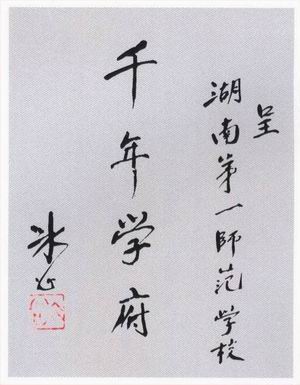 呈
湖南第一師范学校
千年学府